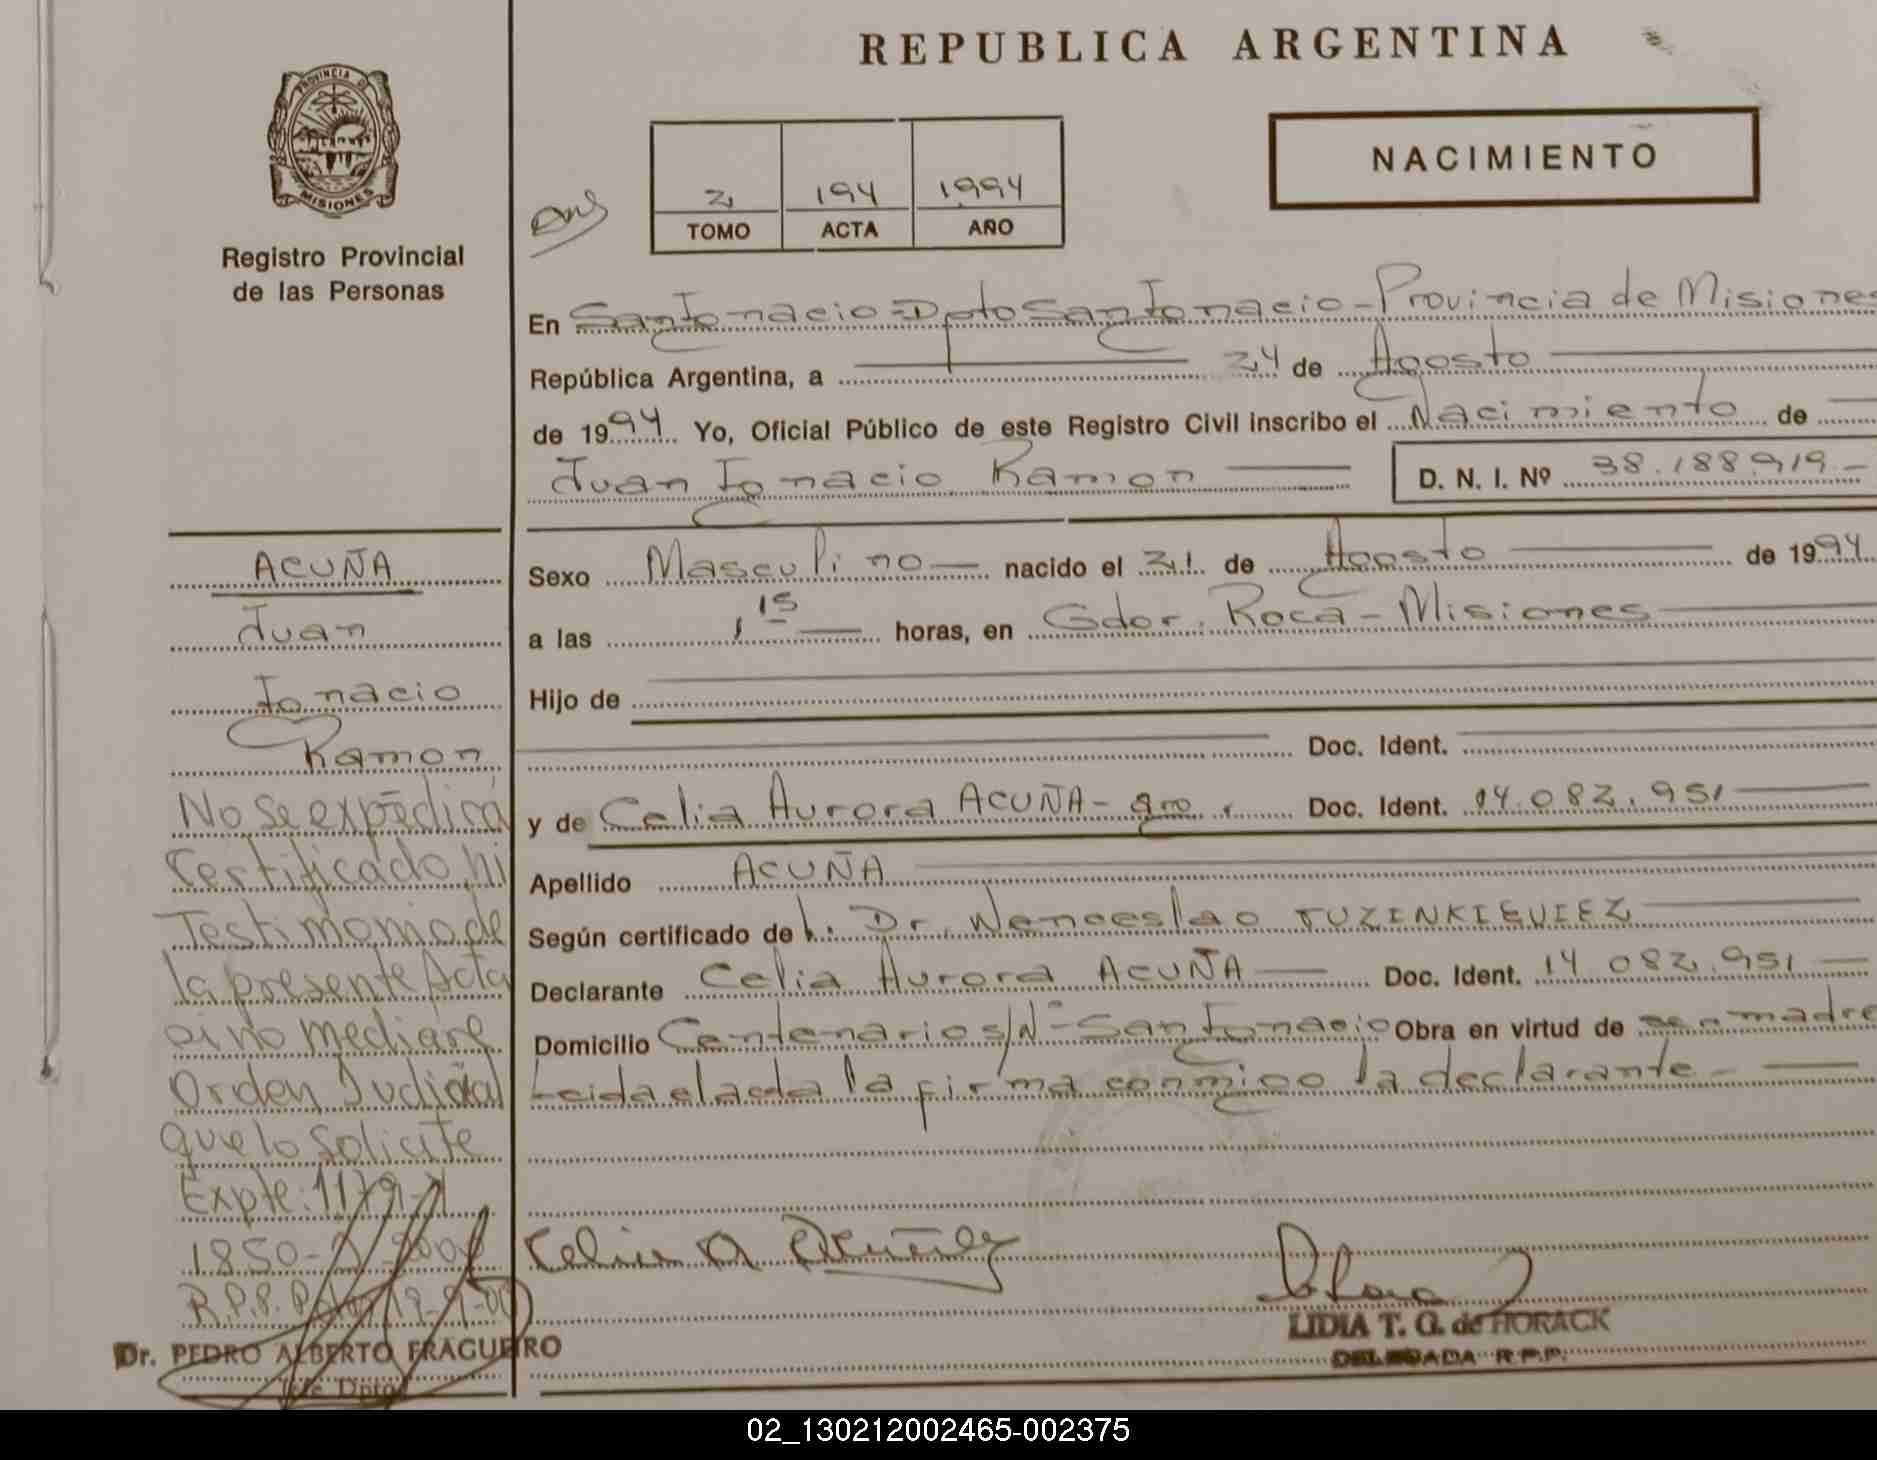 REPUBLICA ARGENTINA
PROVINCIA DE
MISIONES
Registro Provincial
de las Personas
NACIMIENTO
2 194 1994
TOMO ACTA AÑO
En San Ignacio-Dpto San Ignacio-Provincia de Misiones
República Argentina, a 24 de Agosto
de 1994 Yo, Oficial Público de este Registro Civil inscribo el Nacimiento de
Juan Ignacio Ramon D. N. I. Nº 38.188.919-
ACUÑA
Juan
Ignacio
Ramon
No se expedirá
Certificado ni
Testimonio de
la presente Acta
si no mediare
Orden Judicial
que lo solicite
Expte: 1179
1850-
R.P.P.
Dr. PEDRO ALBERTO FRAGUEIRO
Jefe Dpto
Sexo Masculino nacido el 21 de Agosto de 1994
a las 1,15 horas, en Gdor. Roca-Misiones
Hijo de
Doc. Ident.
y de Celia Aurora ACUÑA- Doc. Ident. 14.082.951
Apellido ACUÑA
Según certificado de l: Dr. Wenceslao
Declarante Celia Aurora ACUÑA Doc. Ident. 14 082.951
Domicilio Centenario s/Nº-San Ignacio Obra en virtud de ser madre
Leida el acta la firma conmigo la declarante-
Celia A Acuña
LIDIA T. G. de HORACK
DELEGADA R.P.P.
02_130212002465-002375